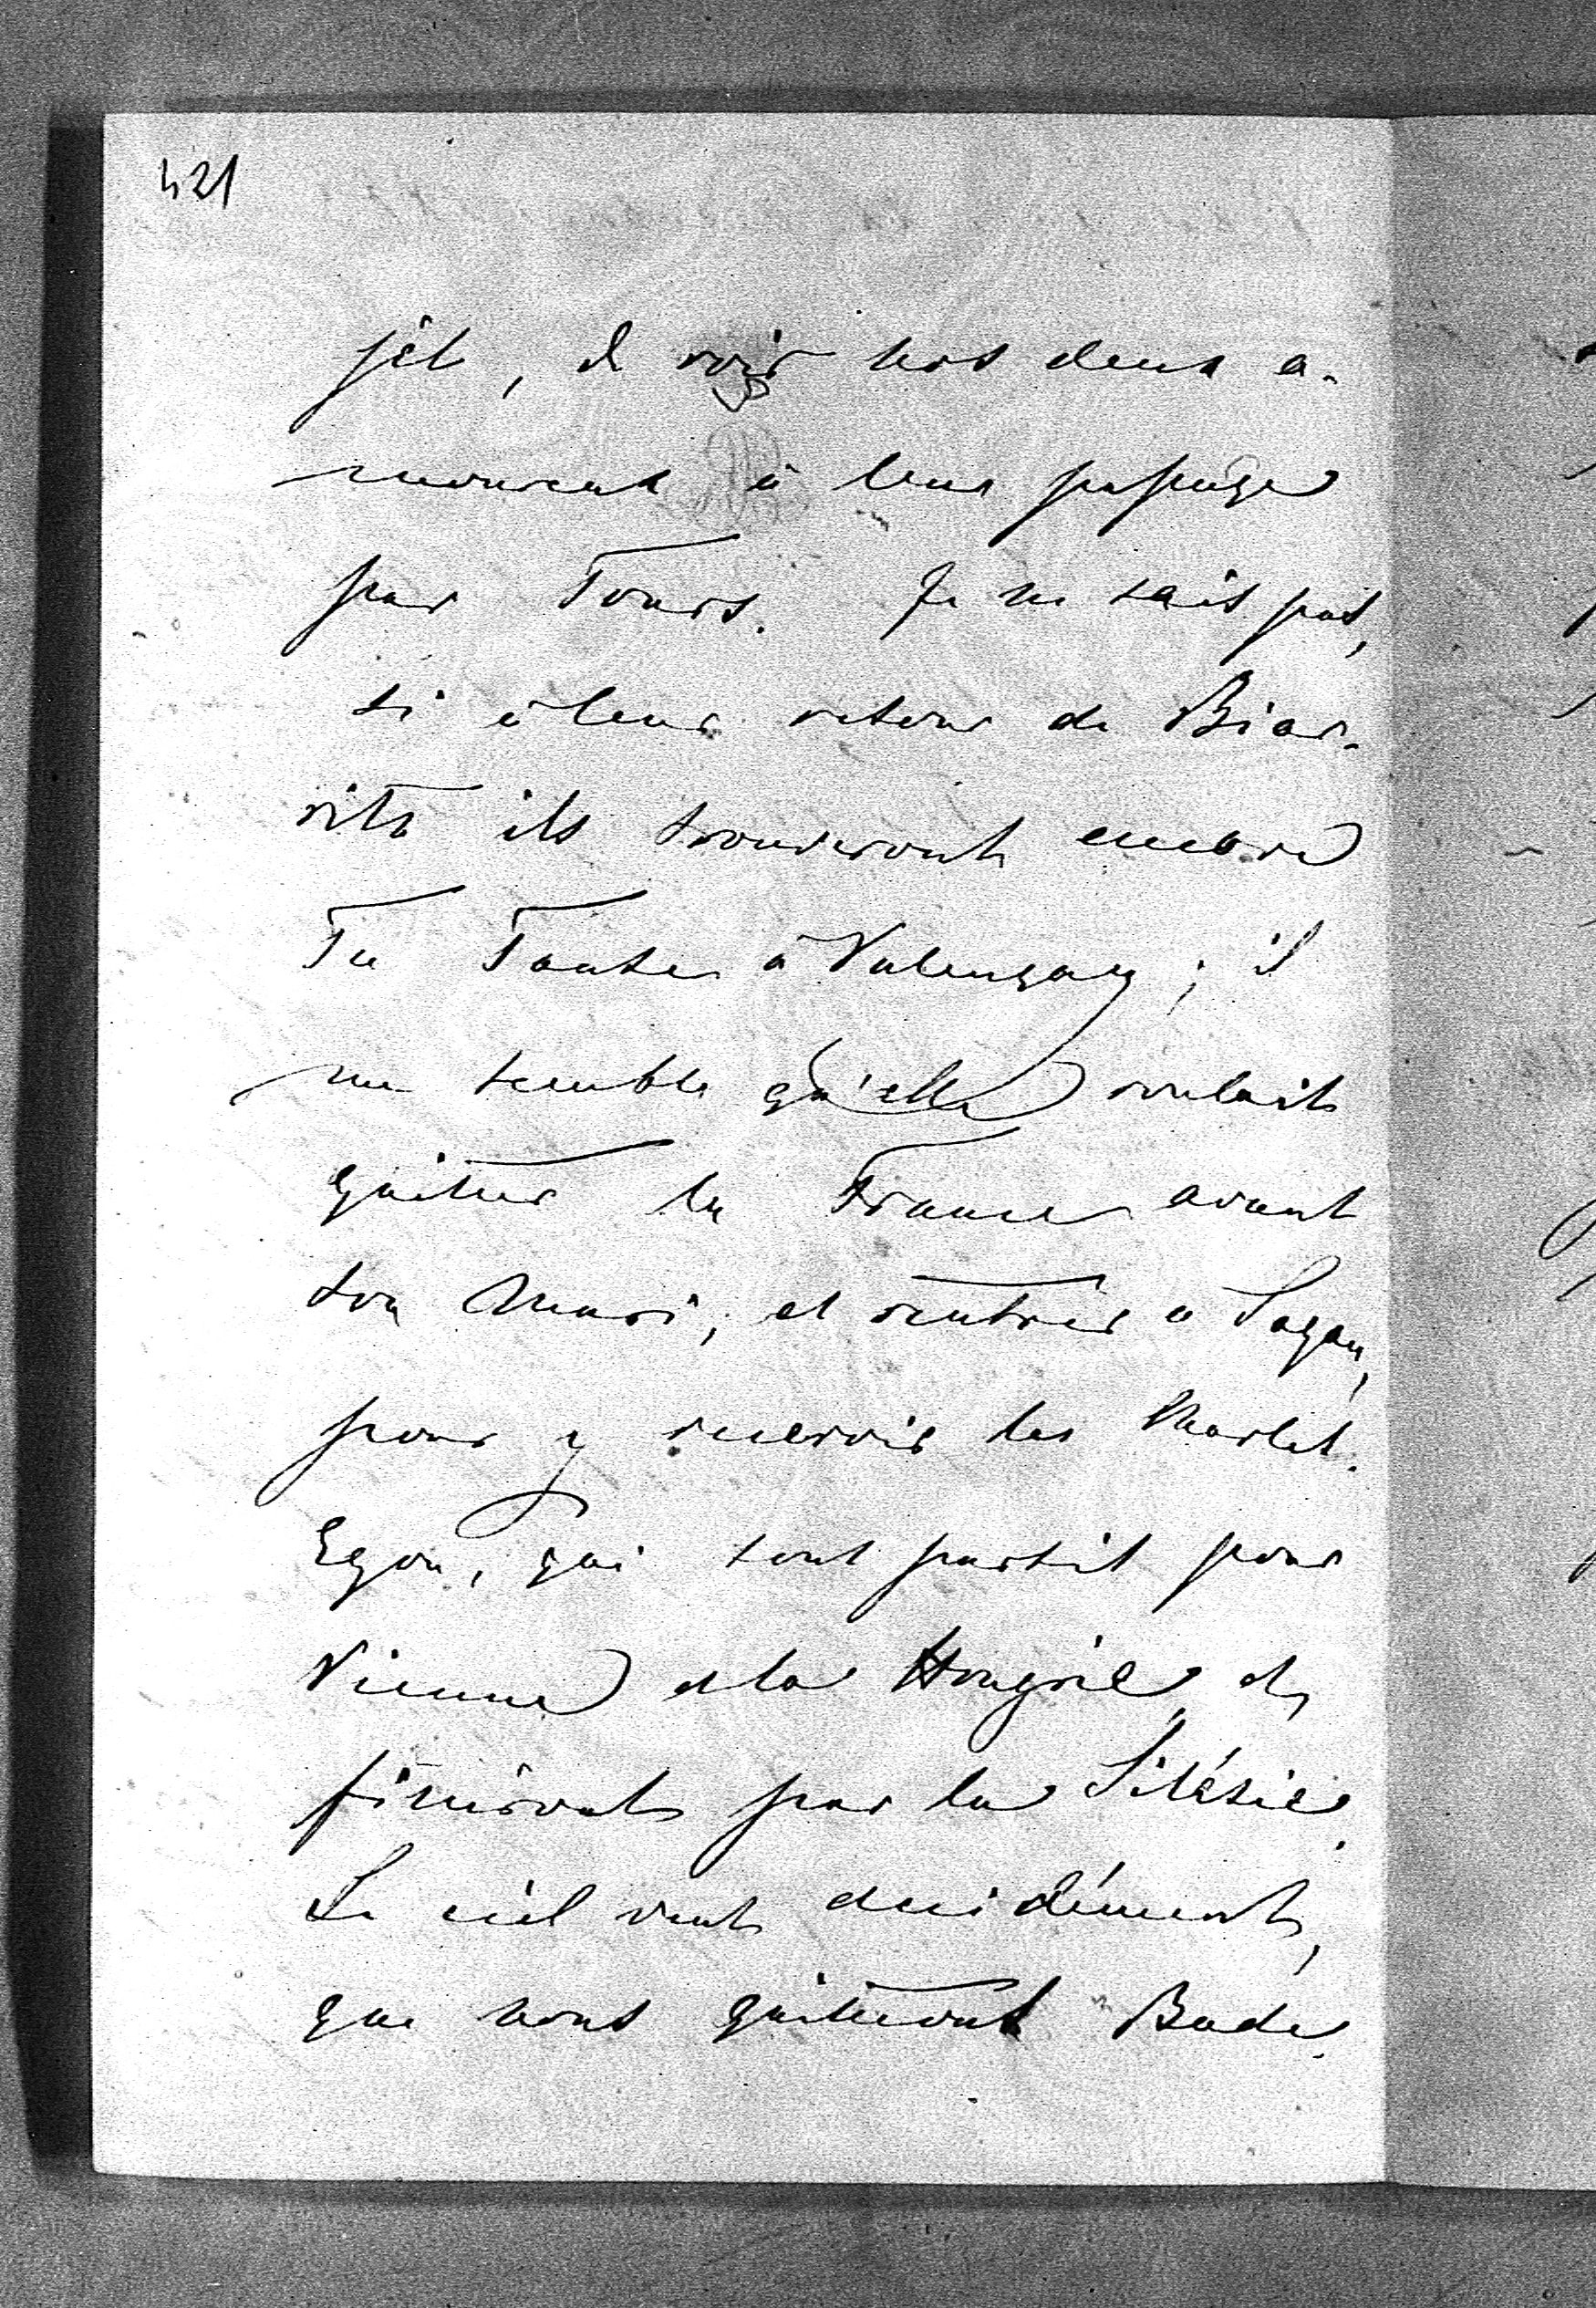 421
jet, de voir nos deux a-
moureux à leur passage
par Tours. Je ne sais pas,
si à leur retour de Biar-
ritz ils trouveront encore
Ta Tante à Valençay; il
me semble qu'elle voulait
quitter la France avant
son Mari, et rentrer à Sagan,
pour y recevoir les
Egon, qui sont partis pour
Vienne et la Hongrie, et
finiront par la Silésie.
Le ciel veut decidément,
que nous quittions Bade.